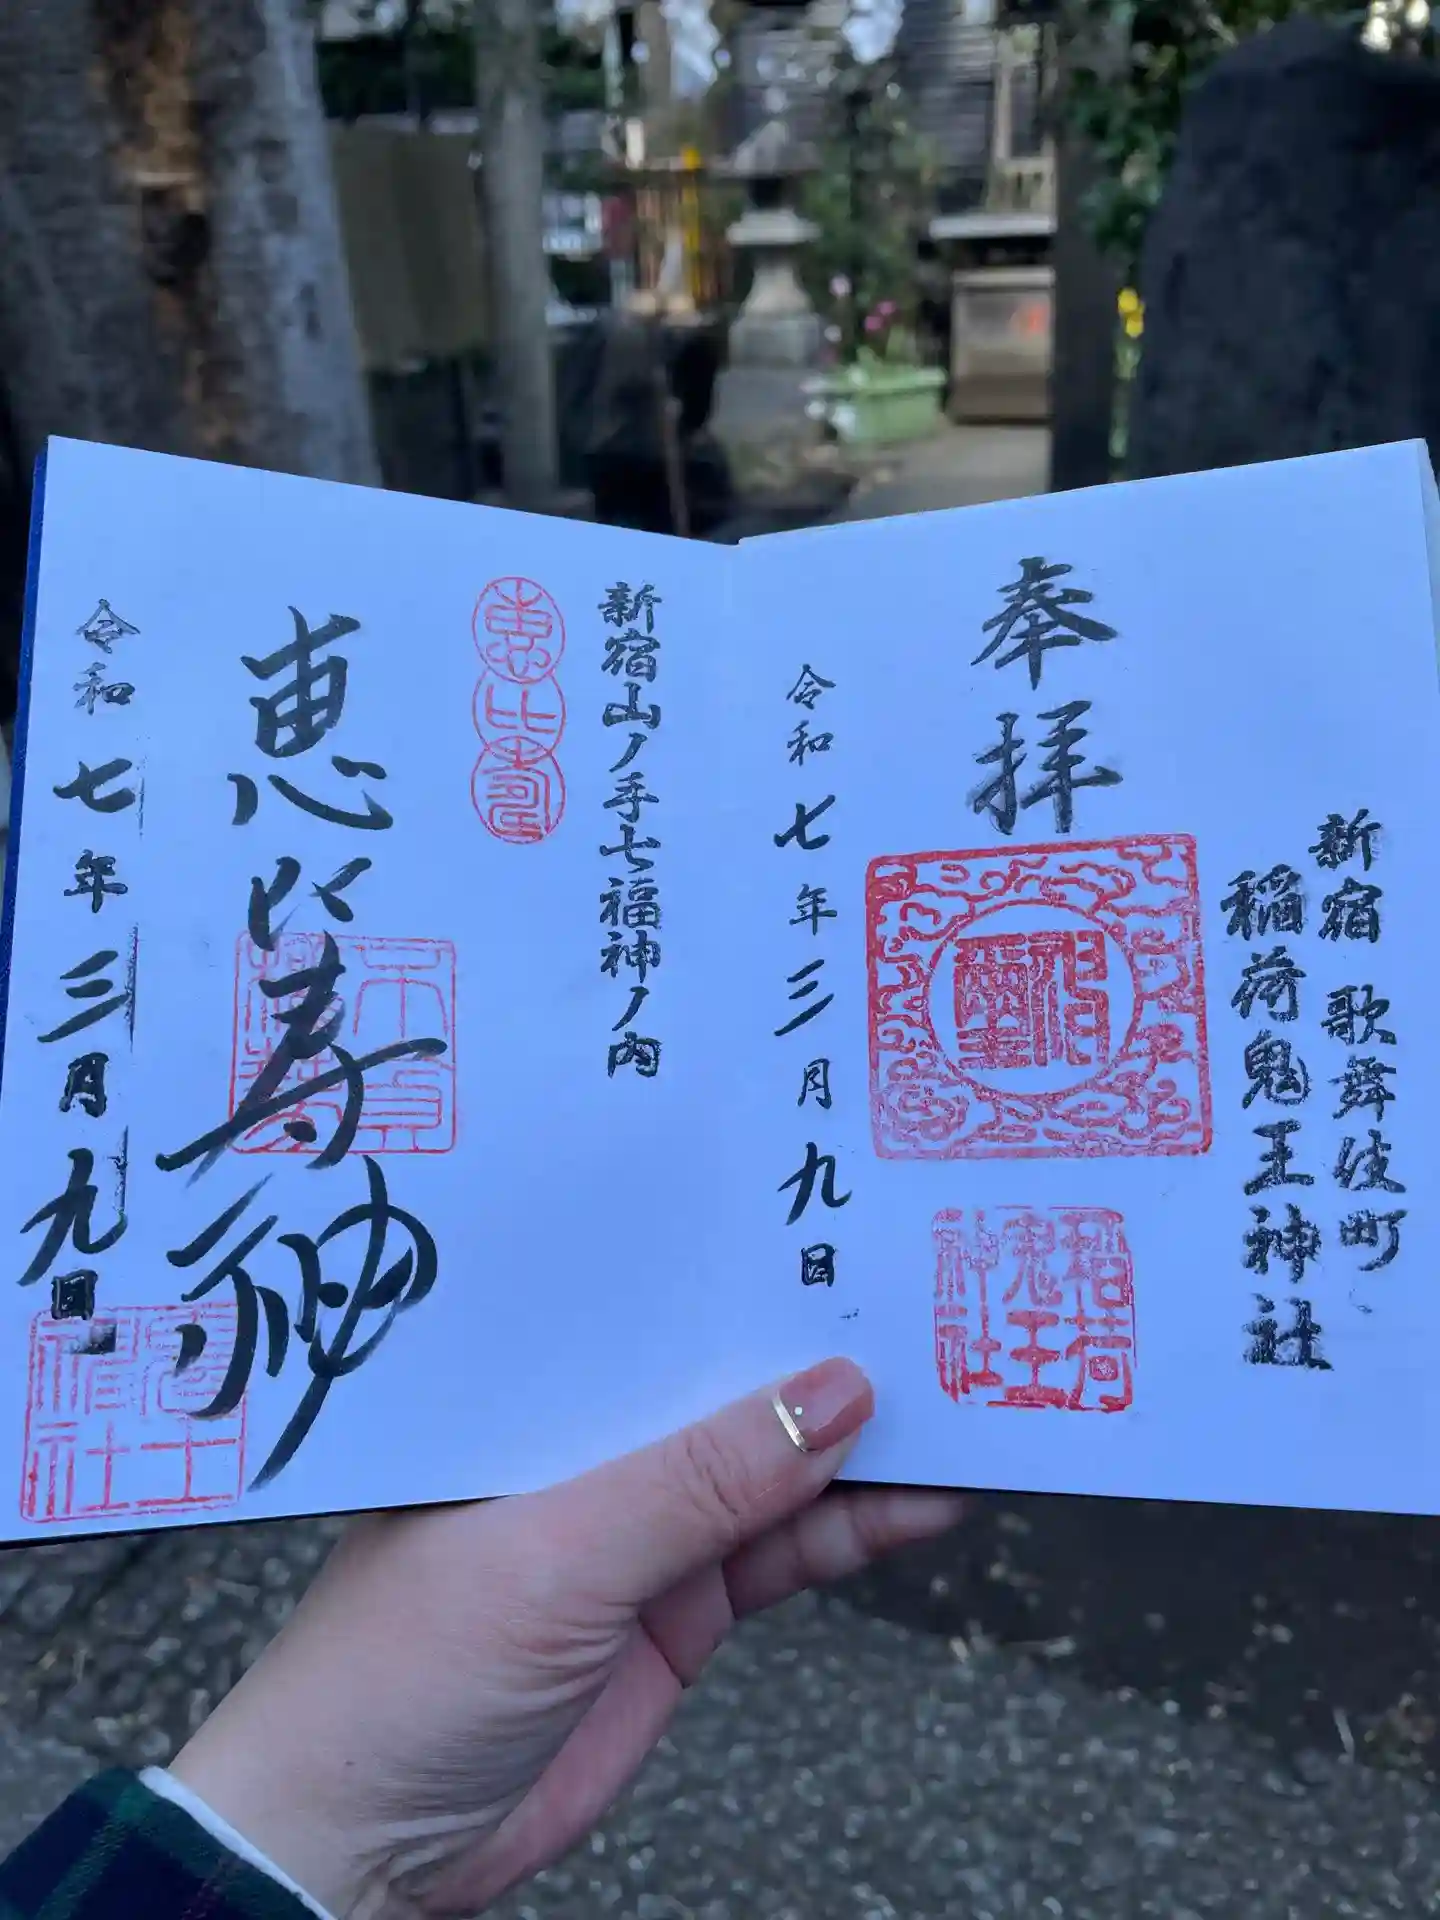 新宿 歌舞伎町
稲荷鬼王神社
奉拝
神璽
稲荷
鬼王
神社
令和七年三月九日
新宿山ノ手七福神ノ内
恵比寿
恵比寿神
令和七年三月九日